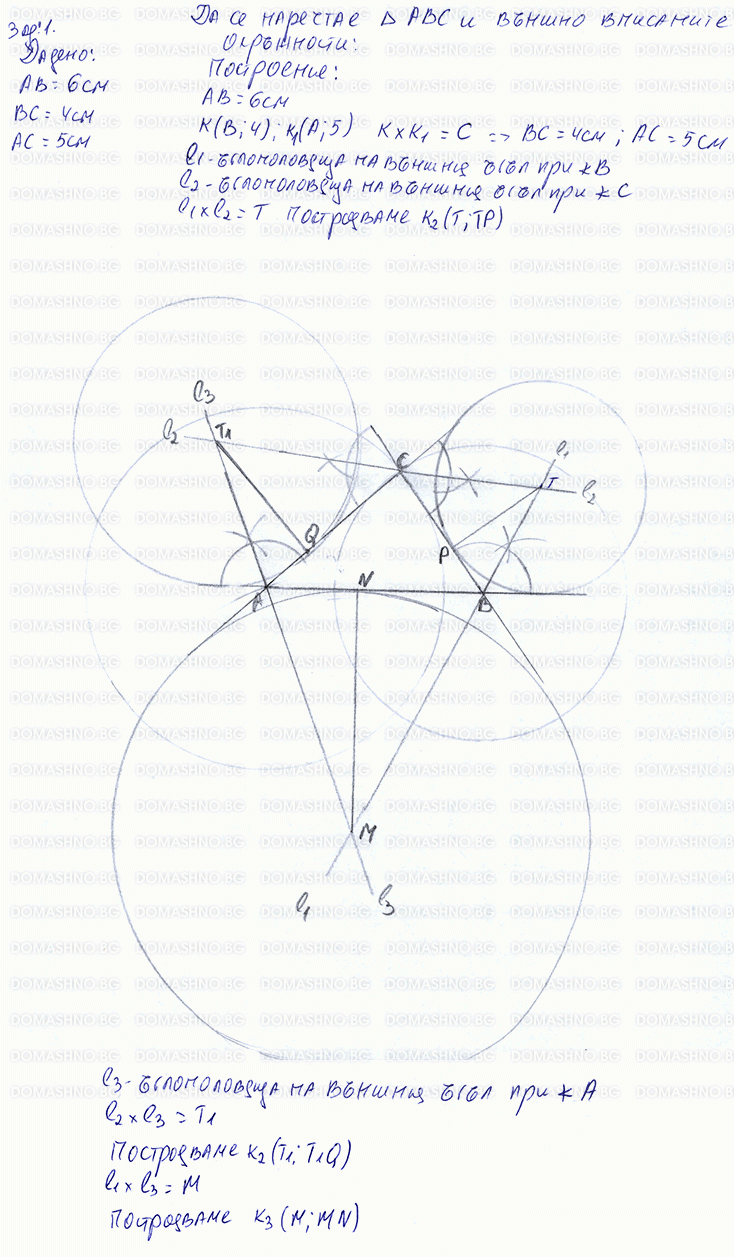 Зад.1.
Дадено:
AB = 6см
BC = 4см
AC = 5см
Да се начертае Δ ABC и външно вписаните
окръжности:
Построение:
AB = 6см
K(B; 4); K1(A; 5) K x K1 = C => BC = 4см ; AC = 5см
l1 - ъглополовяща на външния ъгъл при ∢B
l2 - ъглополовяща на външния ъгъл при ∢C
l1 x l2 = T построяваме K2(T; TP)
l3
l2
T1
C
l1
T
l2
Q
P
A
N
B
M
l1
l3
l3 - ъглополовяща на външния ъгъл при ∢A
l2 x l3 = T1
Построяваме K2(T1; T1Q)
l1 x l3 = M
Построяваме K3(M; MN)
DOMASHNO.BG